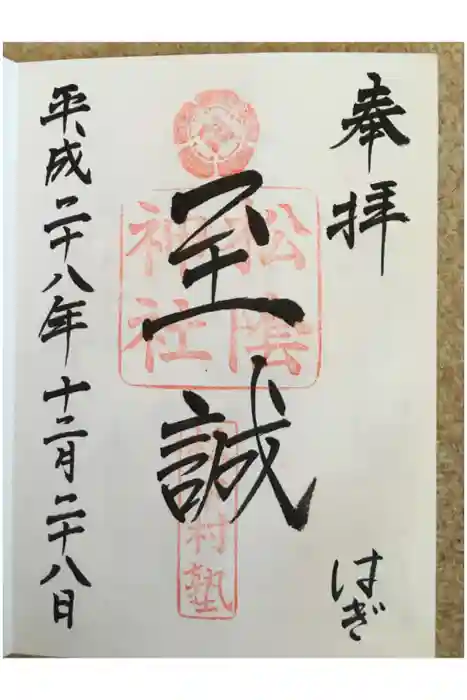 奉拝
はぎ
至誠
松陰
神社
村塾
平成二十八年十二月二十八日